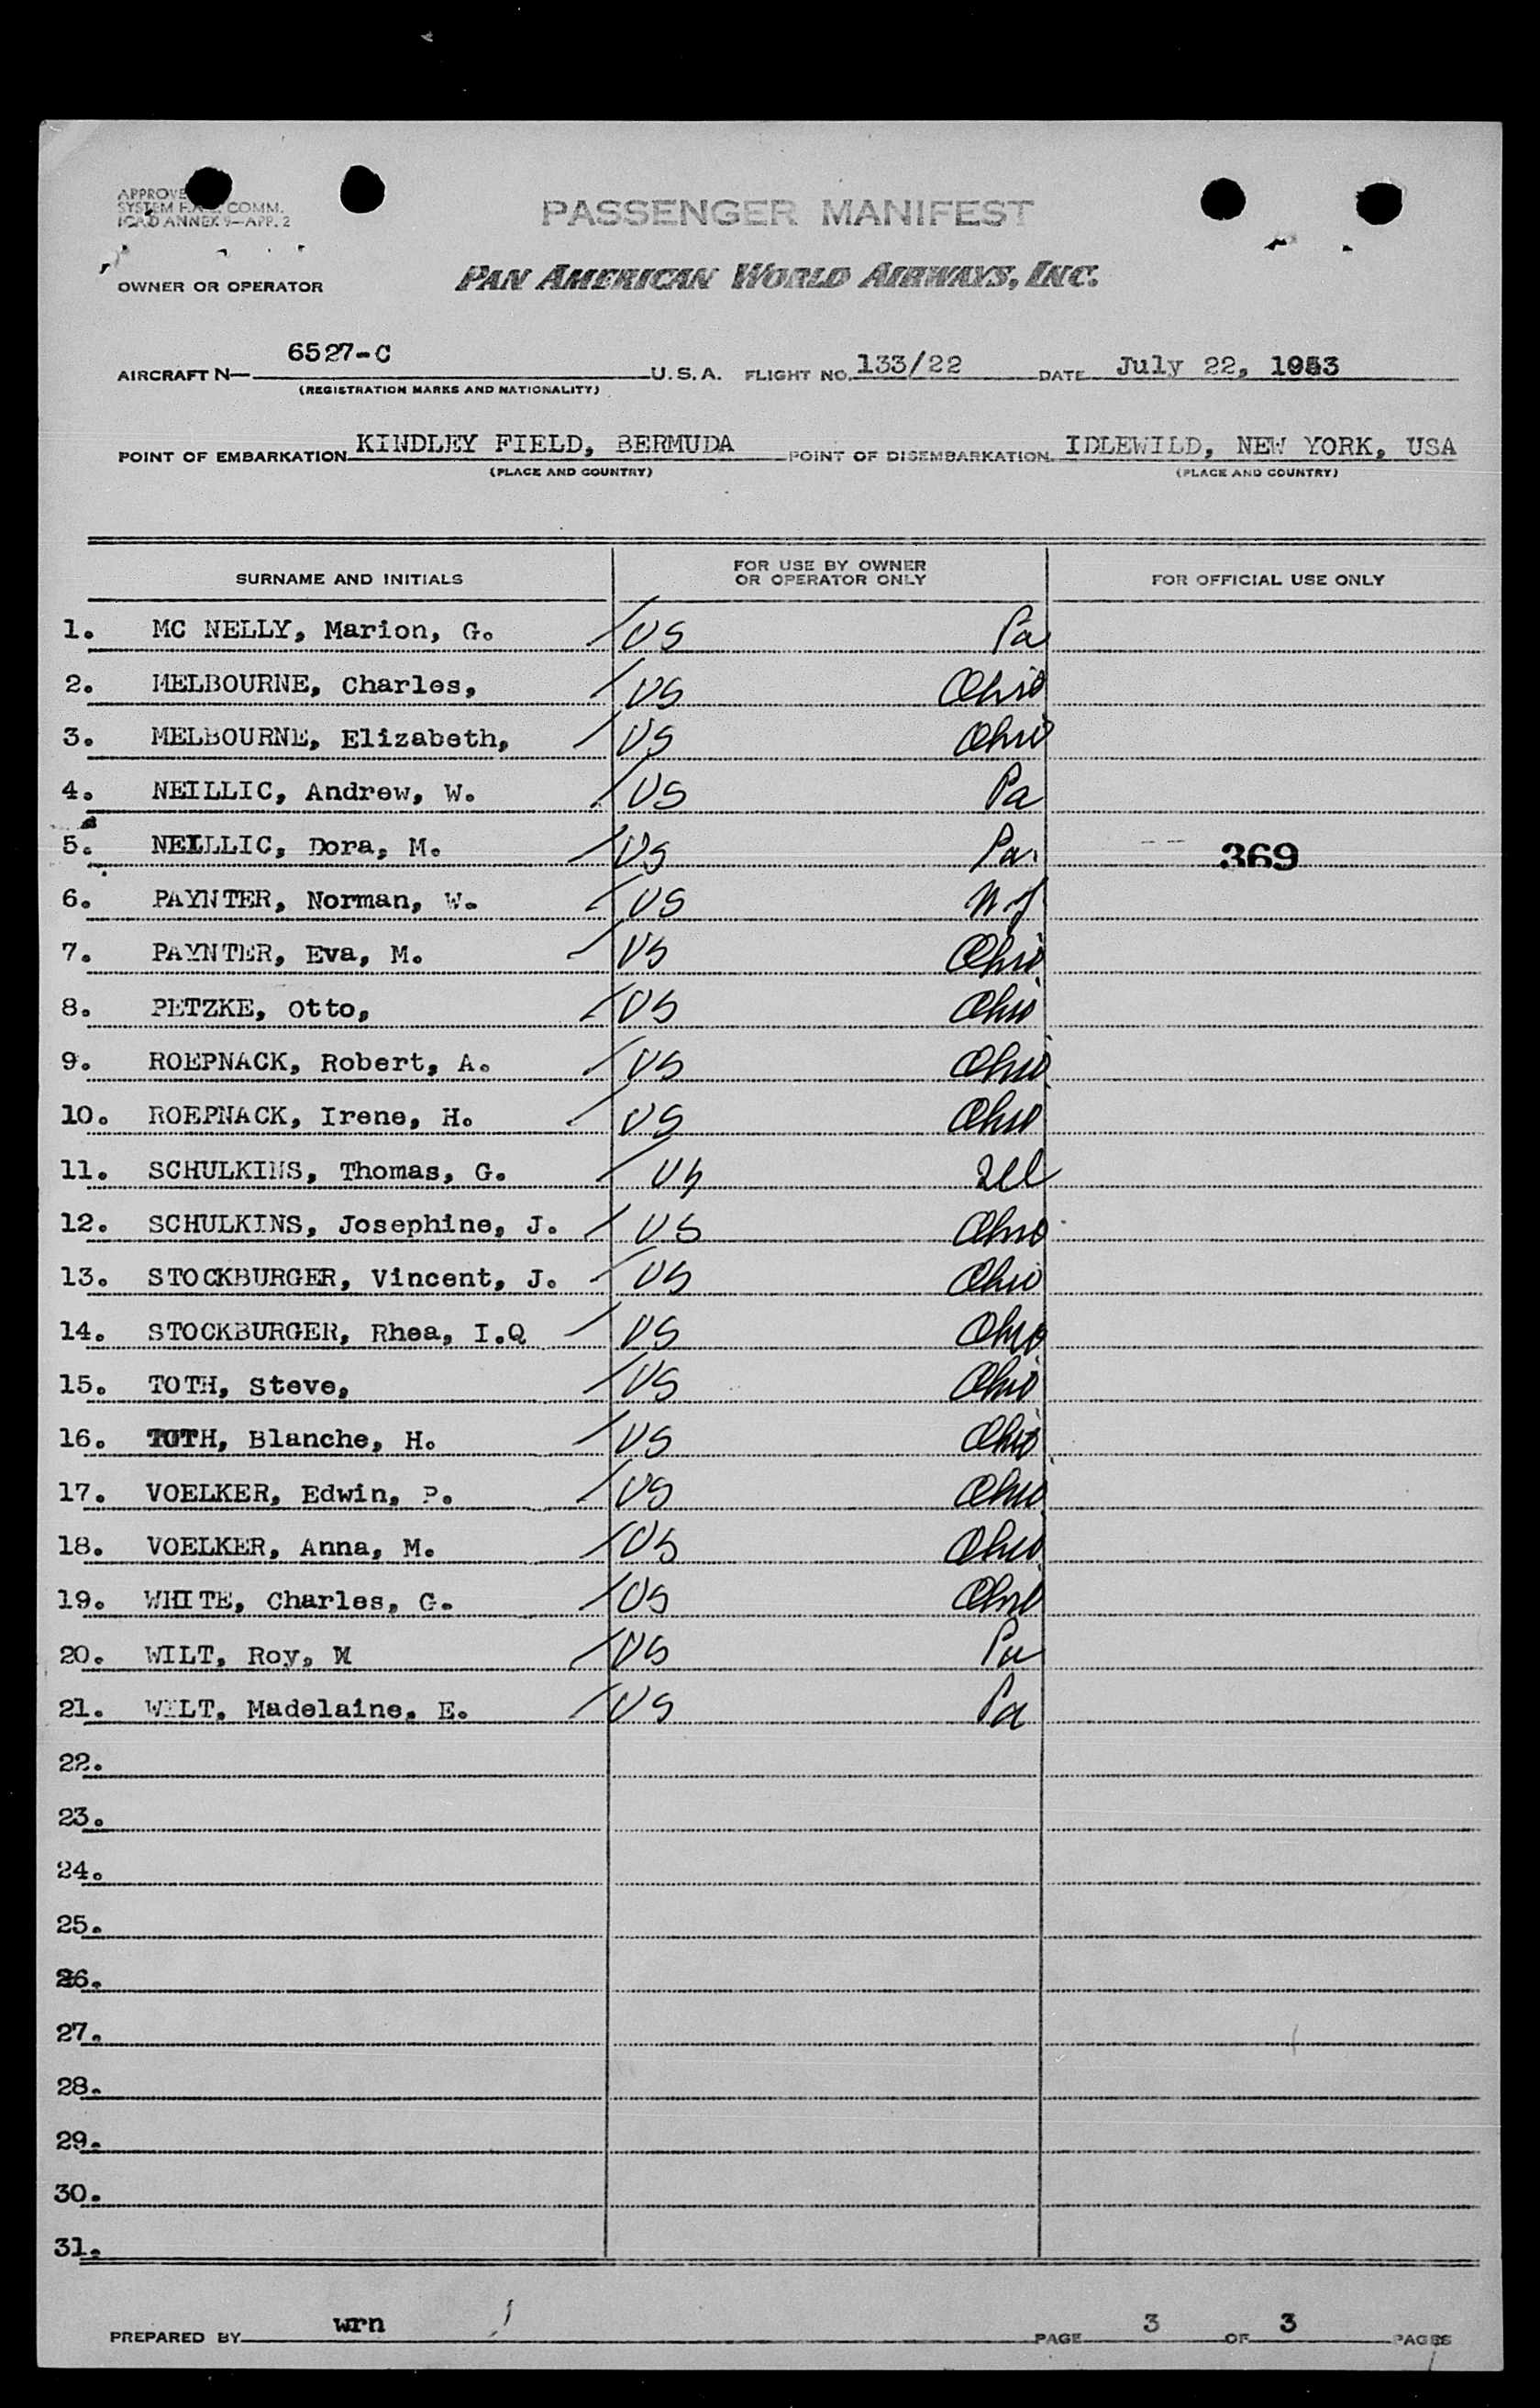 APPROVE
SYSTEM F.A.L. COMM.
ICAO ANNEX 9—APP. 2
PASSENGER MANIFEST
OWNER OR OPERATOR PAN AMERICAN WORLD AIRWAYS, INC.
AIRCRAFT N— 6527-C U.S.A. FLIGHT NO. 133/22 DATE July 22, 1953
(REGISTRATION MARKS AND NATIONALITY)
POINT OF EMBARKATION KINDLEY FIELD, BERMUDA POINT OF DISEMBARKATION IDLEWILD, NEW YORK, USA
(PLACE AND COUNTRY) (PLACE AND COUNTRY)
SURNAME AND INITIALS FOR USE BY OWNER OR OPERATOR ONLY FOR OFFICIAL USE ONLY
1. MC NELLY, Marion, G. / US Pa
2. MELBOURNE, Charles, / US Ohio
3. MELBOURNE, Elizabeth, / US Ohio
4. NEILLIC, Andrew, W. / US Pa
5. NEILLIC, Dora, M. / US Pa. 369
6. PAYNTER, Norman, W. / US NJ
7. PAYNTER, Eva, M. / US Ohio
8. PETZKE, Otto, / US Ohio
9. ROEPNACK, Robert, A. / US Ohio
10. ROEPNACK, Irene, H. / US Ohio
11. SCHULKINS, Thomas, G. / US Ill
12. SCHULKINS, Josephine, J. / US Ohio
13. STOCKBURGER, Vincent, J. / US Ohio
14. STOCKBURGER, Rhea, I.Q / US Ohio
15. TOTH, Steve, / US Ohio
16. TOTH, Blanche, H. / US Ohio
17. VOELKER, Edwin, P. / US Ohio
18. VOELKER, Anna, M. / US Ohio
19. WHITE, Charles, G. / US Ohio
20. WILT, Roy, M / US Pa
21. WILT, Madelaine, E. / US Pa
22.
23.
24.
25.
26.
27.
28.
29.
30.
31.
PREPARED BY wrn PAGE 3 OF 3 PAGES